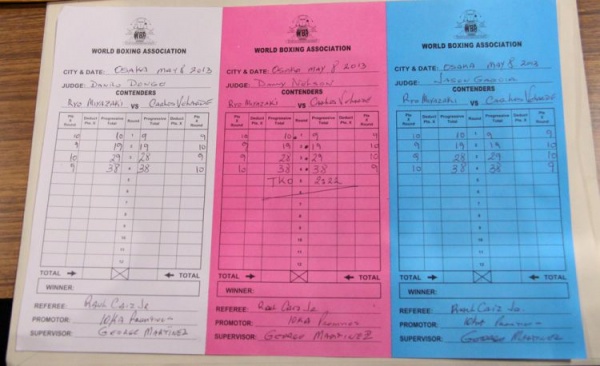 WORLD BOXING ASSOCIATION
CITY & DATE: OSAKA MAY 8 2013
JUDGE: DANILO DONGO
CONTENDERS
RYO MIYAZAKI VS CARLOS VELARDE
Pts # Round Deduct Pts. # Progressive Total Round Progressive Total Deduct Pts. # Pts # Round
10 10 1 9 9
9 19 2 19 10
10 29 3 28 9
9 38 4 38 10
5
6
7
8
9
10
11
12
TOTAL TOTAL
WINNER:
REFEREE: Raul Caiz Jr
PROMOTOR: IOKA Promotion
SUPERVISOR: GEORGE MARTINEZ
WORLD BOXING ASSOCIATION
CITY & DATE: OSAKA MAY 8 2013
JUDGE:
CONTENDERS
RYO MIYAZAKI VS CARLOS VELARDE
Pts # Round Deduct Pts. # Progressive Total Round Progressive Total Deduct Pts. # Pts # Round
10 10 1 9 9
9 19 2 19 10
9 28 3 29 10
10 38 4 38 9
TKO 5 2:22
6
7
8
9
10
11
12
TOTAL TOTAL
WINNER:
REFEREE: Raul Caiz Jr.
PROMOTOR: IOKA Promotion
SUPERVISOR: GEORGE MARTINEZ
WORLD BOXING ASSOCIATION
CITY & DATE: OSAKA MAY 8 2013
JUDGE:
CONTENDERS
RYO MIYAZAKI VS CARLOS VELARDE
Pts # Round Deduct Pts. # Progressive Total Round Progressive Total Deduct Pts. # Pts # Round
10 10 1 9 9
9 19 2 19 10
9 28 3 29 10
10 38 4 38 9
5
6
7
8
9
10
11
12
TOTAL TOTAL
WINNER:
REFEREE: Raul Caiz Jr.
PROMOTOR: IOKA Promotion
SUPERVISOR: GEORGE MARTINEZ